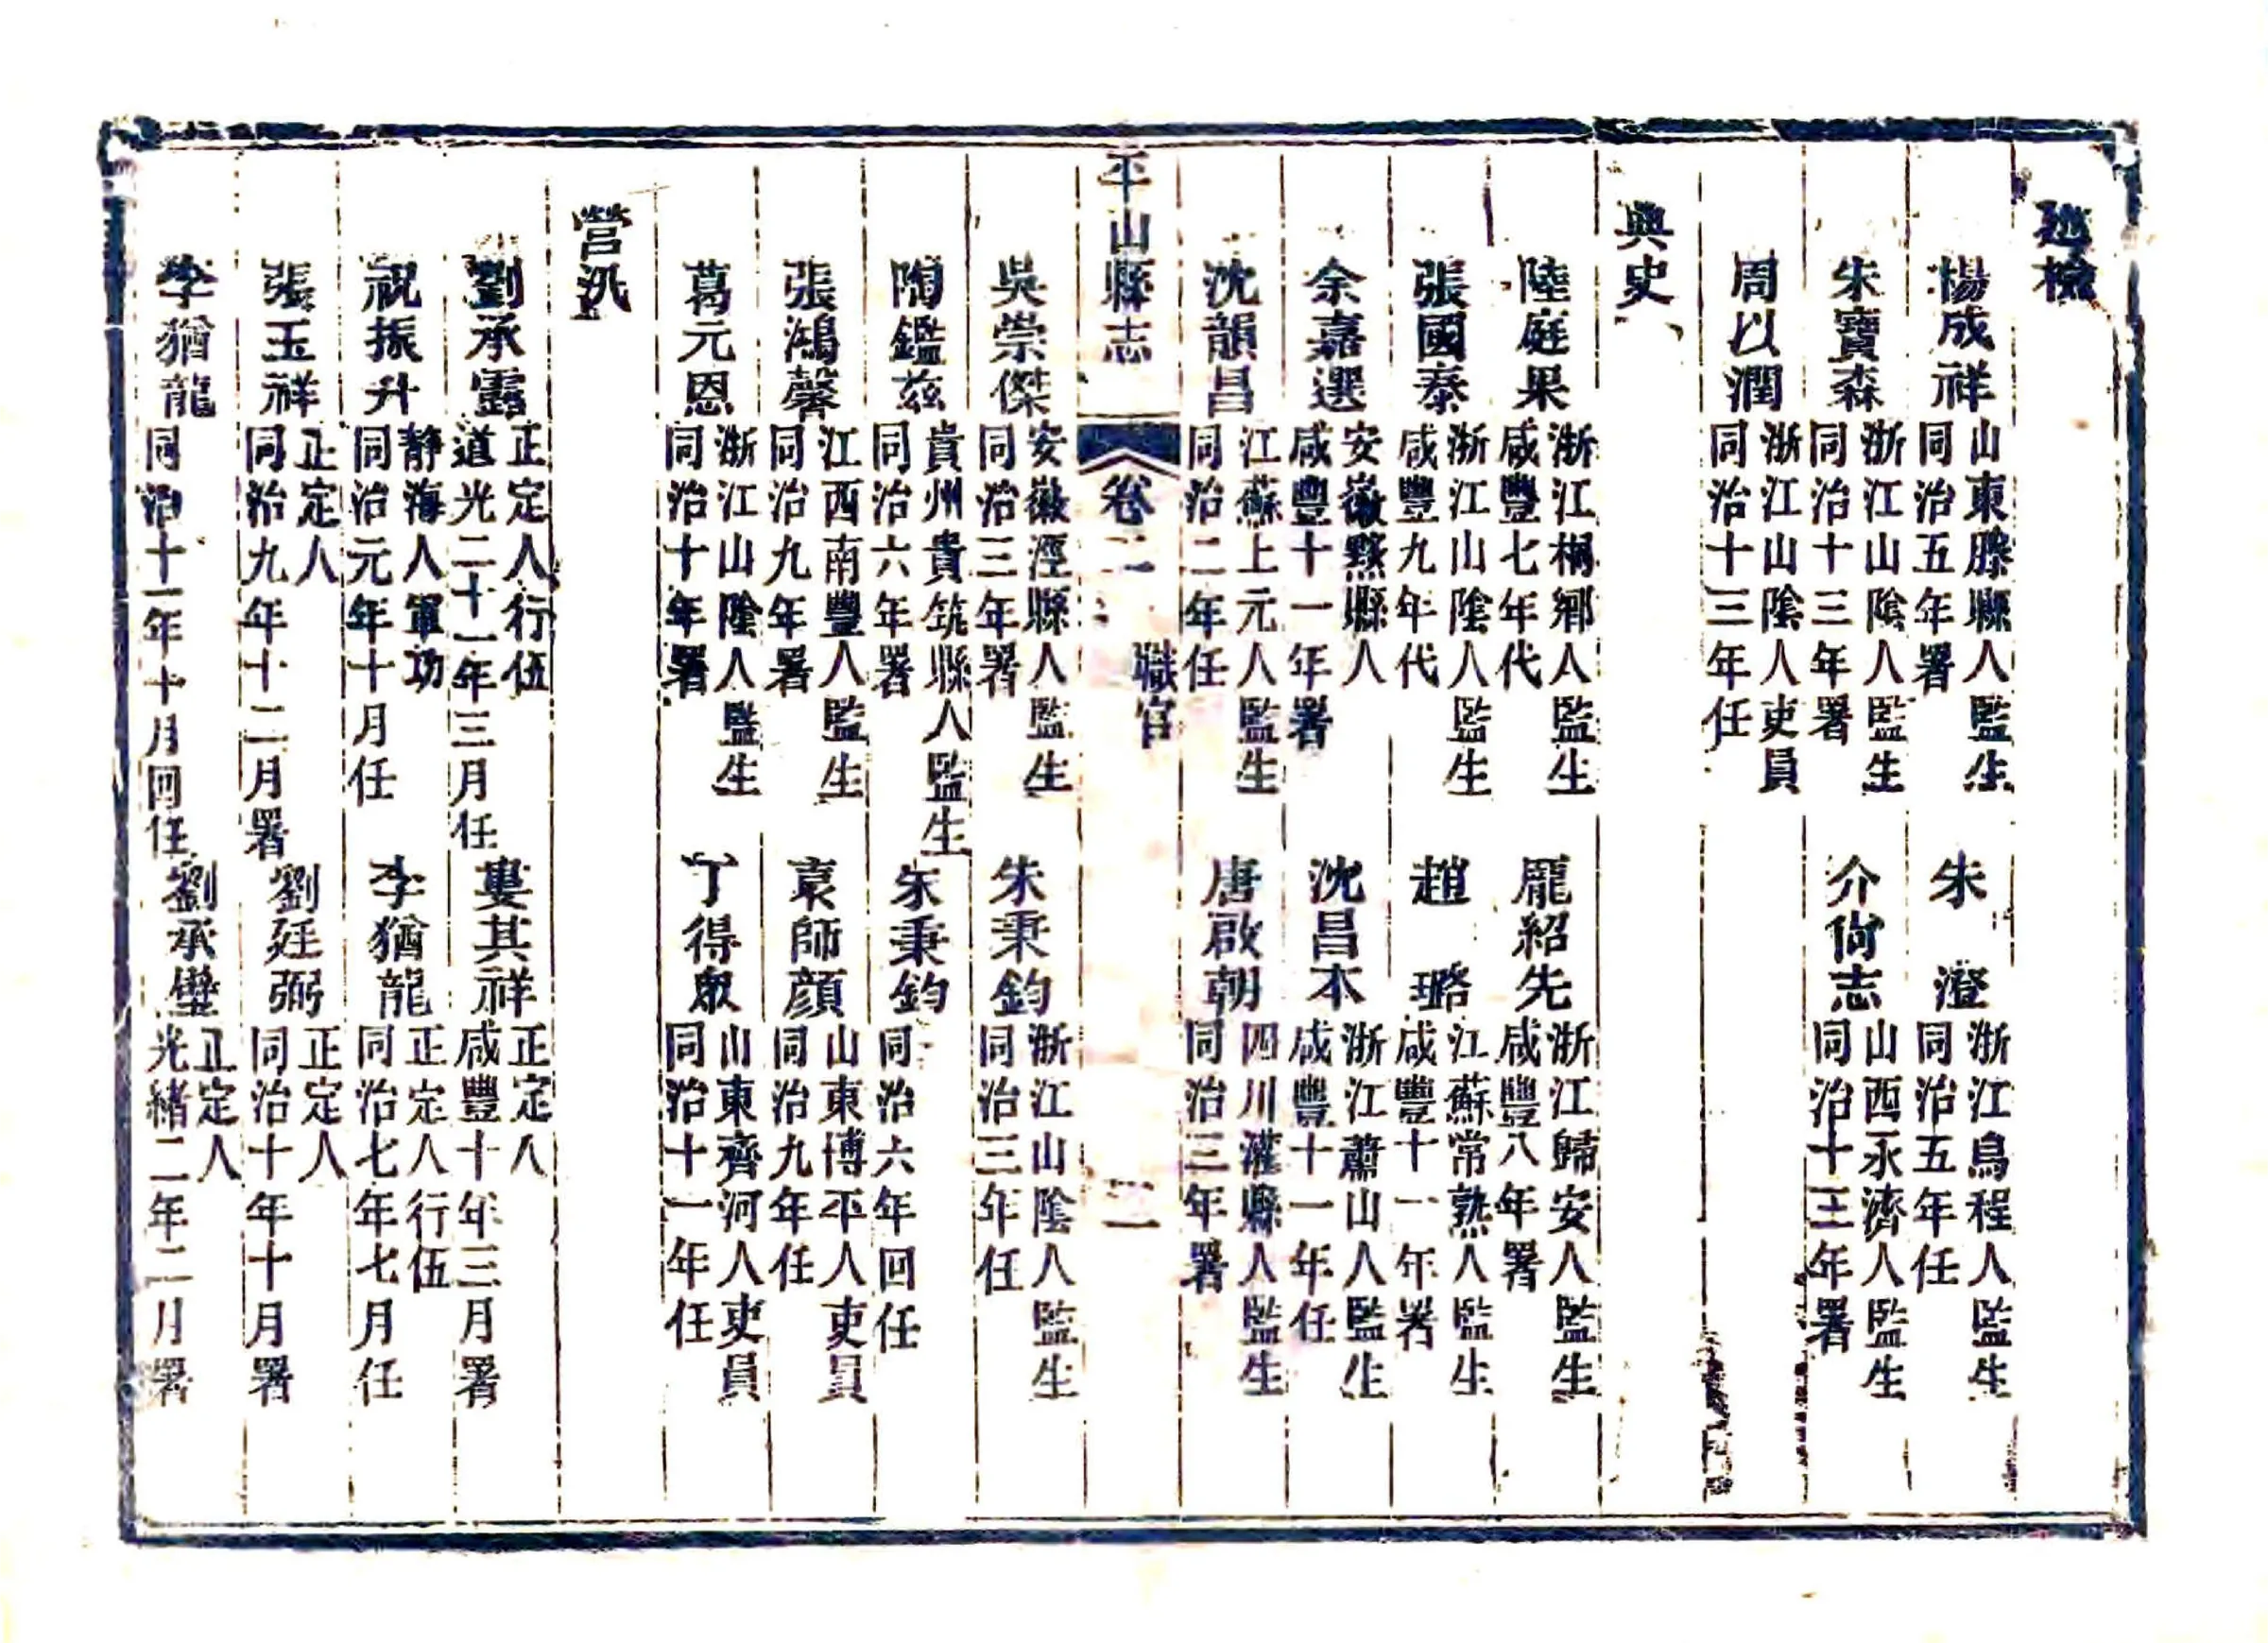 巡檢
楊成祥 山東滕縣人監生 同治五年署 朱澄 浙江烏程人監生 同治五年任
朱寶森 浙江山陰人監生 同治十三年署 介尙志 山西永濟人監生 同治十三年署
周以潤 浙江山陰人吏員 同治十三年任
典史
陸庭果 浙江桐鄉人監生 咸豐七年代 龎紹先 浙江歸安人監生 咸豐八年署
張國泰 浙江山陰人監生 咸豐九年代 趙璐 江蘇常熟人監生 咸豐十一年署
余嘉選 安徽黟縣人 咸豐十一年署 沈昌本 浙江蕭山人監生 咸豐十一年任
沈韻昌 江蘇上元人監生 同治二年任 唐啟朝 四川灌縣人監生 同治三年署
平山縣志 卷二 職官 二
吳崇傑 安徽涇縣人監生 同治三年署 朱秉鈞 浙江山陰人監生 同治三年任
陶鑑茲 貴州貴筑縣人監生 同治六年署 朱秉鈞 同治六年回任
張鴻馨 江西南豐人監生 同治九年署 袁師顔 山東博平人吏員 同治九年任
葛元恩 浙江山陰人監生 同治十年署 丁得眾 山東齊河人吏員 同治十一年任
營汛
劉承露 正定人行伍 道光二十一年三月任 婁其祥 正定人 咸豐十年三月署
祝振升 靜海人軍功 同治元年十月任 李猶龍 正定人行伍 同治七年七月任
張玉祥 正定人 同治九年十二月署 劉廷弼 正定人 同治十年十月署
李猶龍 同治十一年十月回任 劉承璧 正定人 光緒二年二月署